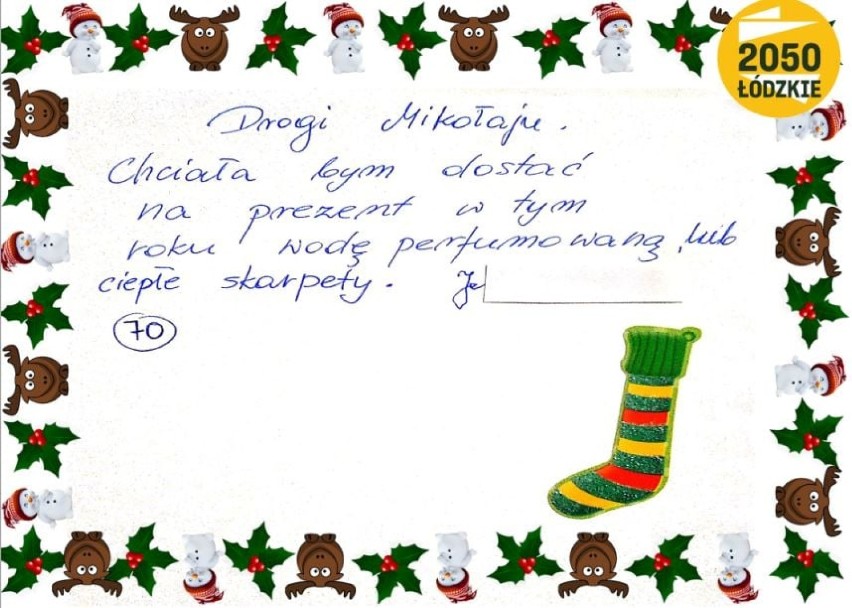 2050
ŁÓDZKIE
Drogi Mikołaju.
Chciała bym dostać
na prezent w tym
roku wodę perfumowaną, lub
ciepłe skarpety.
70